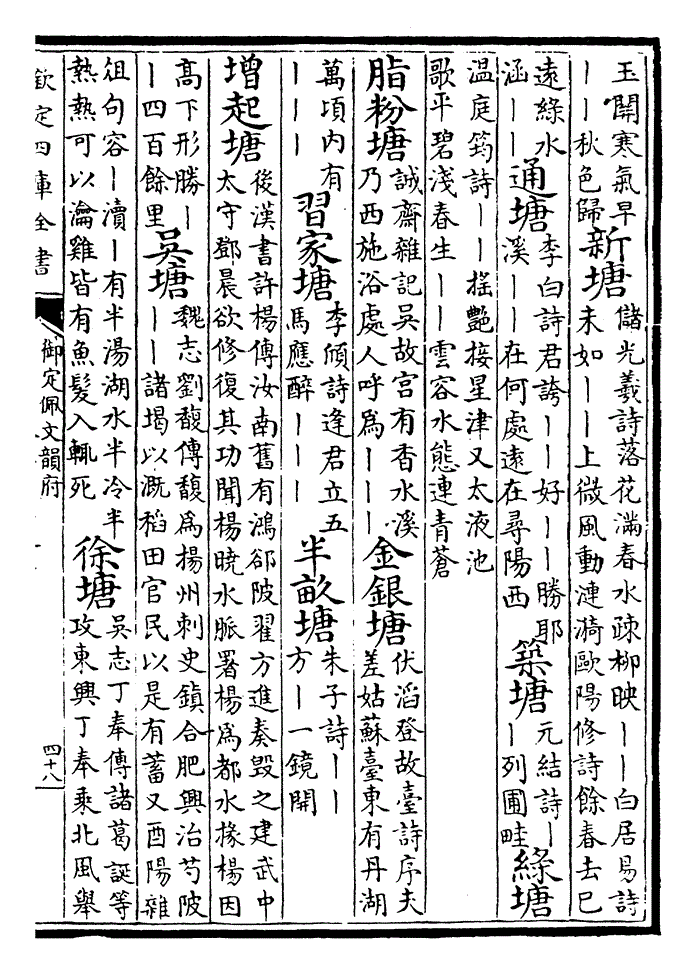 玉關寒氣早
丨丨秋色歸
新塘
儲光羲詩落花滿春水疎柳映丨丨白居易詩
未如丨丨上微風動漣漪歐陽修詩餘春去已
遠綠水
涵丨丨
通塘
李白詩君誇丨丨好丨丨勝耶
溪丨丨在何處遠在尋陽西
築塘
元結詩丨
丨列圃畦
綠塘
溫庭筠詩丨丨搖艷接星津又太液池
歌平碧淺春生丨丨雲容水態連青蒼
脂粉塘
誠齋雜記吳故宮有香水溪
乃西施浴處人呼爲丨丨丨
金銀塘
伏滔登故臺詩序夫
差姑蘇臺東有丹湖
萬頃内有
丨丨丨
習家塘
李頎詩逢君立五
馬應醉丨丨丨
半畝塘
朱子詩丨丨
方丨一鏡開
增起塘
後漢書許楊傳汝南舊有鴻郤陂翟方進奏毀之建武中
太守鄧晨欲修復其功聞楊曉水脈署楊爲都水掾楊因
高下形勝丨
丨四百餘里
吳塘
魏志劉馥傳馥爲揚州刺史鎮合肥興治芍陂
丨丨諸堨以溉稻田官民以是有蓄又酉陽雜
俎句容丨瀆丨有半湯湖水半冷半
熱熱可以瀹雞皆有魚髮入輒死
徐塘
吳志丁奉傳諸葛誕等
攻東興丁奉乘北風舉
欽定四庫全書
御定佩文韻府
四十八